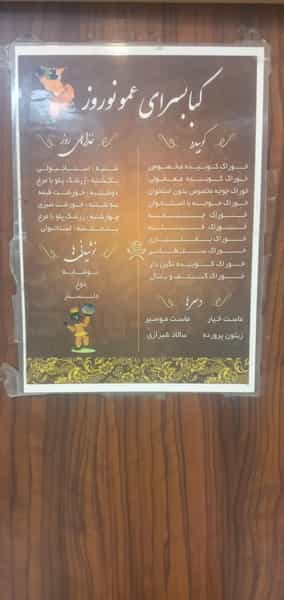 کبابسرای عمو نوروز
کوبیده
خوراک کوبیده مخصوص
خوراک کوبیده معمولی
خوراک جوجه مخصوص بدون استخوان
خوراک جوجه با استخوان
خوراک
خوراک
خوراک بختیاری
خوراک سلطانی
خوراک کوبیده نگین دار
خوراک
دسرها
ماست خیار
ماست موسیر
زیتون پرورده
سالاد شیرازی
غذاهای روز
شنبه : استانبولی
یکشنبه : زرشک پلو با مرغ
دوشنبه : خورشت قیمه
سه شنبه : خورشت سبزی
چهارشنبه : زرشک پلو با مرغ
پنجشنبه : استانبولی
نوشیدنی
نوشابه
دوغ
دلستر